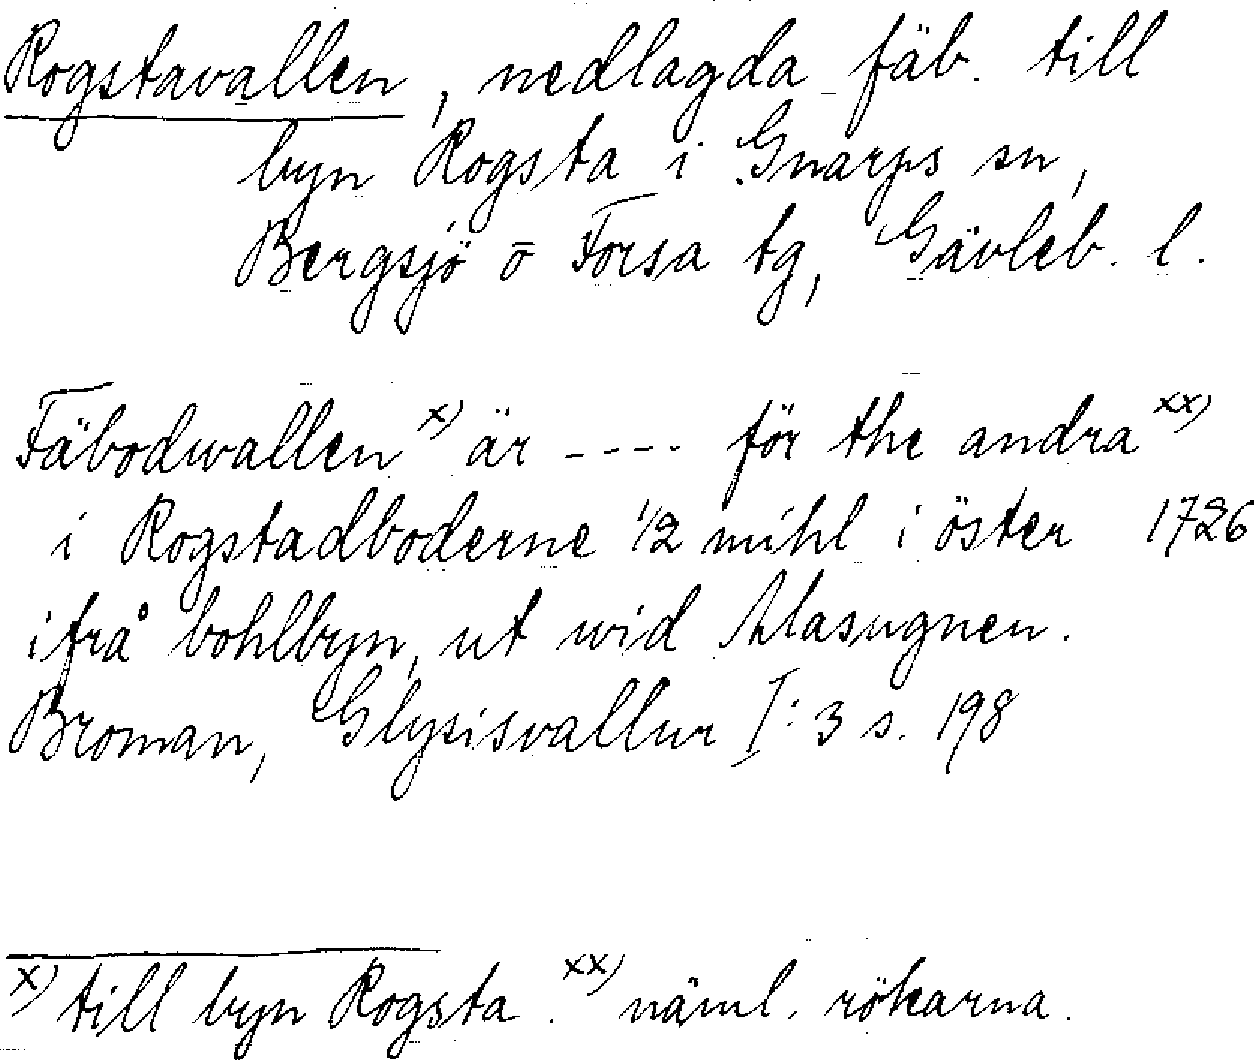 Rogstavallen, nedlagda fäb. till
byn Rogsta i Gnarps sn,
Bergsjö o Forsa tg, Gävleb. l.
Fäbodwallen x) är ---- för the andra xx)
i Rogstadboderne 1/2 mihl i öster 1726
ifrå bohlbyn, ut wid Masugnen.
Broman, Glysisvallur I:3 s. 198
x) till byn Rogsta. xx) näml. rökarna.